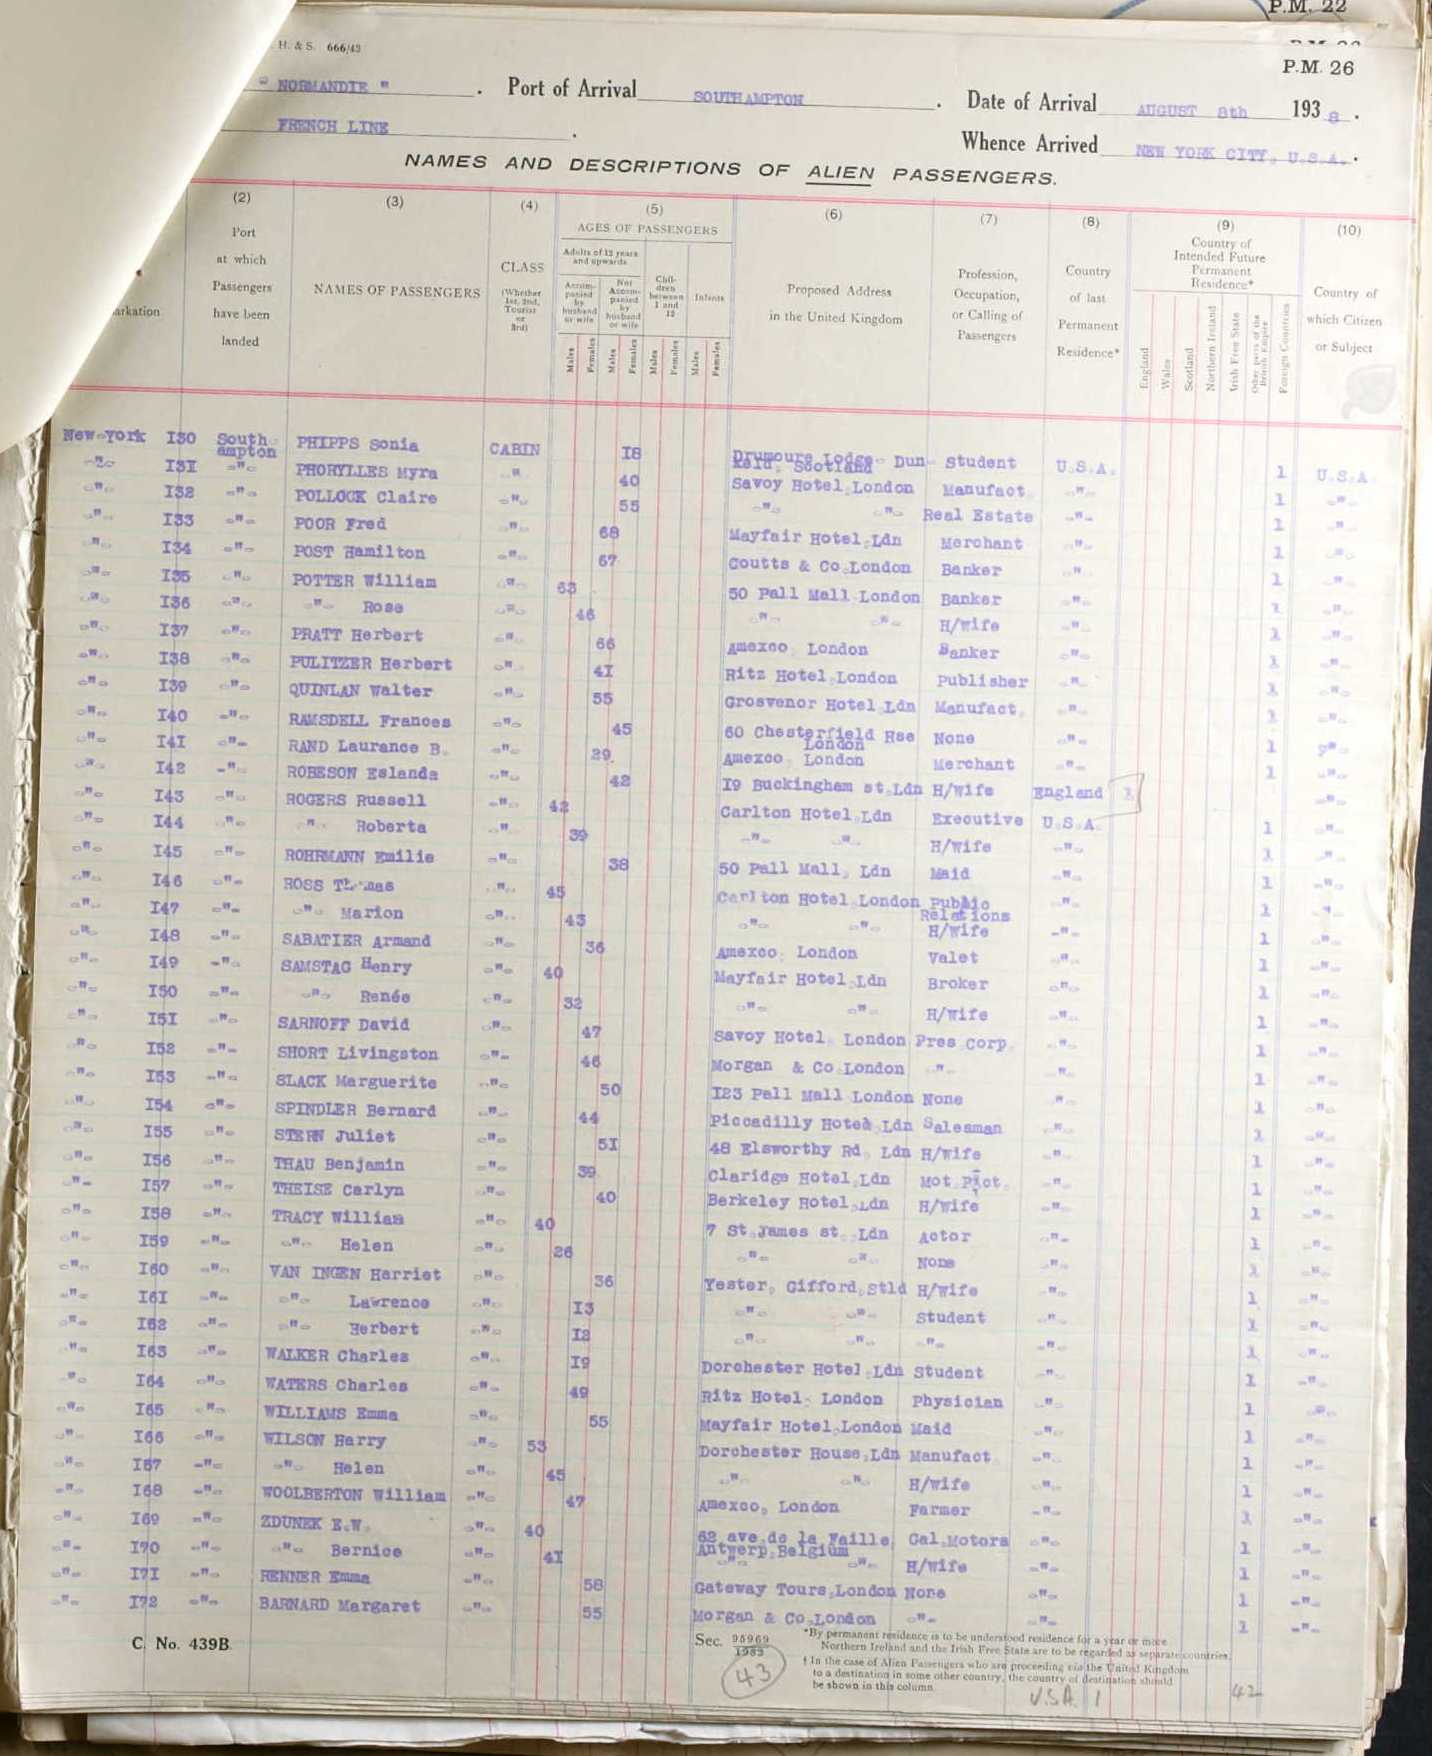 P.M. 22
H. & S. 666/43
P.M. 26
" NORMANDIE " . Port of Arrival SOUTHAMPTON . Date of Arrival AUGUST 8th 1938 .
FRENCH LINE . Whence Arrived NEW YORK CITY, U.S.A. .
NAMES AND DESCRIPTIONS OF ALIEN PASSENGERS.
(2) (3) (4) (5) (6) (7) (8) (9) (10)
arkation
Port at which Passengers have been landed
NAMES OF PASSENGERS
CLASS (Whether 1st, 2nd, Tourist or 3rd)
AGES OF PASSENGERS
Adults of 12 years and upwards
Accompanied by husband or wife
Not Accompanied by husband or wife
Children between 1 and 12
Infants
Males Females Males Females Males Females Males Females
Proposed Address in the United Kingdom
Profession, Occupation, or Calling of Passengers
Country of last Permanent Residence*
Country of Intended Future Permanent Residence*
England Wales Scotland Northern Ireland Irish Free State Other parts of the British Empire Foreign Countries
Country of which Citizen or Subject
New-York I30 South-ampton PHIPPS Sonia CABIN I8 Drumoure Lodge- Dun- Keld, Scotland Student U.S.A. 1 U.S.A.
-"- I3I -"- PHORYLLES Myra -"- 40 Savoy Hotel,London Manufact. -"- 1 -"-
-"- I32 -"- POLLOCK Claire -"- 55 -"- -"- Real Estate -"- 1 -"-
-"- I33 -"- POOR Fred -"- 68 Mayfair Hotel,Ldn Merchant -"- 1 -"-
-"- I34 -"- POST Hamilton -"- 67 Coutts & Co.London Banker -"- 1 -"-
-"- I35 -"- POTTER William -"- 63 50 Pall Mall London Banker -"- 1 -"-
-"- I36 -"- -"- Rose -"- 46 -"- -"- H/wife -"- 1 -"-
-"- I37 -"- PRATT Herbert -"- 66 Amexco, London Banker -"- 1 -"-
-"- I38 -"- PULITZER Herbert -"- 4I Ritz Hotel,London Publisher -"- 1 -"-
-"- I39 -"- QUINLAN Walter -"- 55 Grosvenor Hotel,Ldn Manufact. -"- 1 -"-
-"- I40 -"- RAMSDELL Frances -"- 45 60 Chesterfield Hse London None -"- 1 -"-
-"- I4I -"- RAND Laurance B. -"- 29 Amexco, London Merchant -"- 1 -"-
-"- I42 -"- ROBESON Eslanda -"- 42 I9 Buckingham st.Ldn H/wife England 1 -"-
-"- I43 -"- ROGERS Russell -"- 42 Carlton Hotel,Ldn Executive U.S.A. 1 -"-
-"- I44 -"- -"- Roberta -"- 39 -"- -"- H/wife -"- 1 -"-
-"- I45 -"- ROHRMANN Emilie -"- 38 50 Pall Mall, Ldn Maid -"- 1 -"-
-"- I46 -"- ROSS Thomas -"- 45 Carlton Hotel London Public Relations -"- 1 -"-
-"- I47 -"- -"- Marion -"- 43 -"- -"- H/wife -"- 1 -"-
-"- I48 -"- SABATIER Armand -"- 36 Amexco, London Valet -"- 1 -"-
-"- I49 -"- SAMSTAG Henry -"- 40 Mayfair Hotel,Ldn Broker -"- 1 -"-
-"- I50 -"- -"- Renée -"- 32 -"- -"- H/wife -"- 1 -"-
-"- I5I -"- SARNOFF David -"- 47 Savoy Hotel, London Pres.corp. -"- 1 -"-
-"- I52 -"- SHORT Livingston -"- 46 Morgan & Co.London -"- -"- 1 -"-
-"- I53 -"- SLACK Marguerite -"- 50 I23 Pall Mall London None -"- 1 -"-
-"- I54 -"- SPINDLER Bernard -"- 44 Piccadilly Hotel,Ldn Salesman -"- 1 -"-
-"- I55 -"- STERN Juliet -"- 5I 48 Elsworthy Rd, Ldn H/wife -"- 1 -"-
-"- I56 -"- THAU Benjamin -"- 39 Claridge Hotel,Ldn Mot.Pict. -"- 1 -"-
-"- I57 -"- THEISE Carlyn -"- 40 Berkeley Hotel,Ldn H/wife -"- 1 -"-
-"- I58 -"- TRACY William -"- 40 7 St.James st.,Ldn Actor -"- 1 -"-
-"- I59 -"- -"- Helen -"- 26 -"- -"- None -"- 1 -"-
-"- I60 -"- VAN INGEN Harriet -"- 36 Yester, Gifford,Stld H/wife -"- 1 -"-
-"- I6I -"- -"- Lawrence -"- I3 -"- -"- Student -"- 1 -"-
-"- I62 -"- -"- Herbert -"- I2 -"- -"- -"- -"- 1 -"-
-"- I63 -"- WALKER Charles -"- I9 Dorchester Hotel,Ldn Student -"- 1 -"-
-"- I64 -"- WATERS Charles -"- 49 Ritz Hotel- London Physician -"- 1 -"-
-"- I65 -"- WILLIAMS Emma -"- 55 Mayfair Hotel,London Maid -"- 1 -"-
-"- I66 -"- WILSON Harry -"- 53 Dorchester House,Ldn Manufact. -"- 1 -"-
-"- I67 -"- -"- Helen -"- 45 -"- -"- H/wife -"- 1 -"-
-"- I68 -"- WOOLBERTON William -"- 47 Amexco, London Farmer -"- 1 -"-
-"- I69 -"- ZDUNEK E.W. -"- 40 62 ave.de la Faille Antwerp,Belgium Gal.Motors -"- 1 -"-
-"- I70 -"- -"- Bernice -"- 4I -"- -"- H/wife -"- 1 -"-
-"- I7I -"- RENNER Emma -"- 58 Gateway Tours,London None -"- 1 -"-
-"- I72 -"- BARNARD Margaret -"- 55 Morgan & Co.London -"- -"- 1 -"-
C. No. 439B
Sec. 95969
1933
43
*By permanent residence is to be understood residence for a year or more
Northern Ireland and the Irish Free State are to be regarded as separate countries.
† In the case of Alien Passengers who are proceeding via the United Kingdom
to a destination in some other country, the country of destination should
be shown in this column.
U.S.A. 1
42